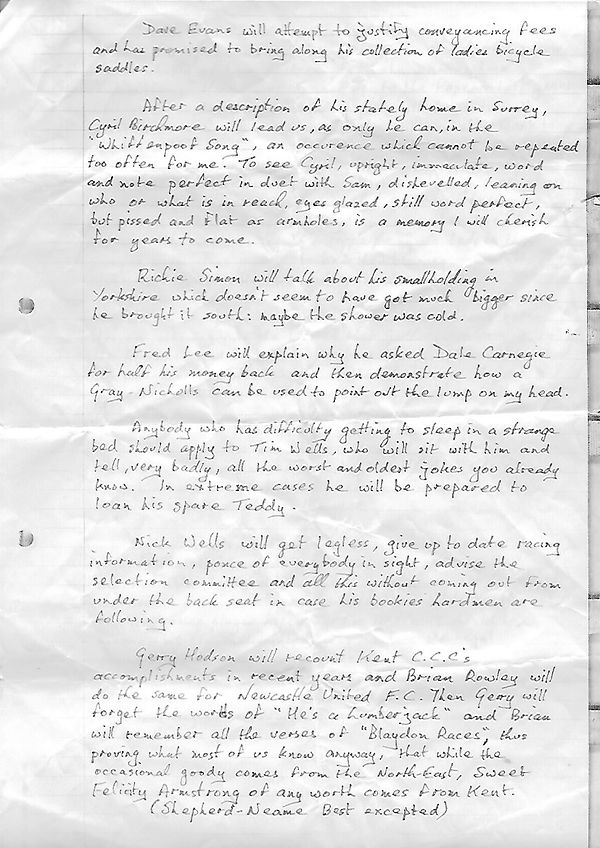 Dave Evans will attempt to justify conveyancing fees
and has promised to bring along his collection of ladies bicycle
saddles.
After a description of his stately home in Surrey,
Cyril Birchmore will lead us, as only he can, in the
"Whiffenpoof Song", an occurence which cannot be repeated
too often for me. To see Cyril, upright, immaculate, word
and note perfect in duet with Sam, dishevelled, leaning on
who or what is in reach, eyes glazed, still word perfect,
but pissed and flat as armholes, is a memory I will cherish
for years to come.
Richie Simon will talk about his smallholding in
Yorkshire which doesn't seem to have got much bigger since
he brought it south: maybe the shower was cold.
Fred Lee will explain why he asked Dale Carnegie
for half his money back and then demonstrate how a
Gray-Nicholls can be used to point out the lump on my head.
Anybody who has difficulty getting to sleep in a strange
bed should apply to Tim Wells, who will sit with him and
tell, very badly, all the worst and oldest jokes you already
know. In extreme cases he will be prepared to
loan his spare Teddy.
Nick Wells will get legless, give up to date racing
information, ponce of everybody in sight, advise the
selection committee and all this without coming out from
under the back seat in case his bookies hardmen are
following.
Gerry Hodson will recount Kent C.C.C's
accomplishments in recent years and Brian Rowley will
do the same for Newcastle United F.C. Then Gerry will
forget the words of "He's a Lumberjack" and Brian
will remember all the verses of "Blaydon Races", thus
proving what most of us know anyway, that while the
occasional goody comes from the North-East, Sweet
Felicity Armstrong of any worth comes from Kent.
(Shepherd-Neame Best excepted)